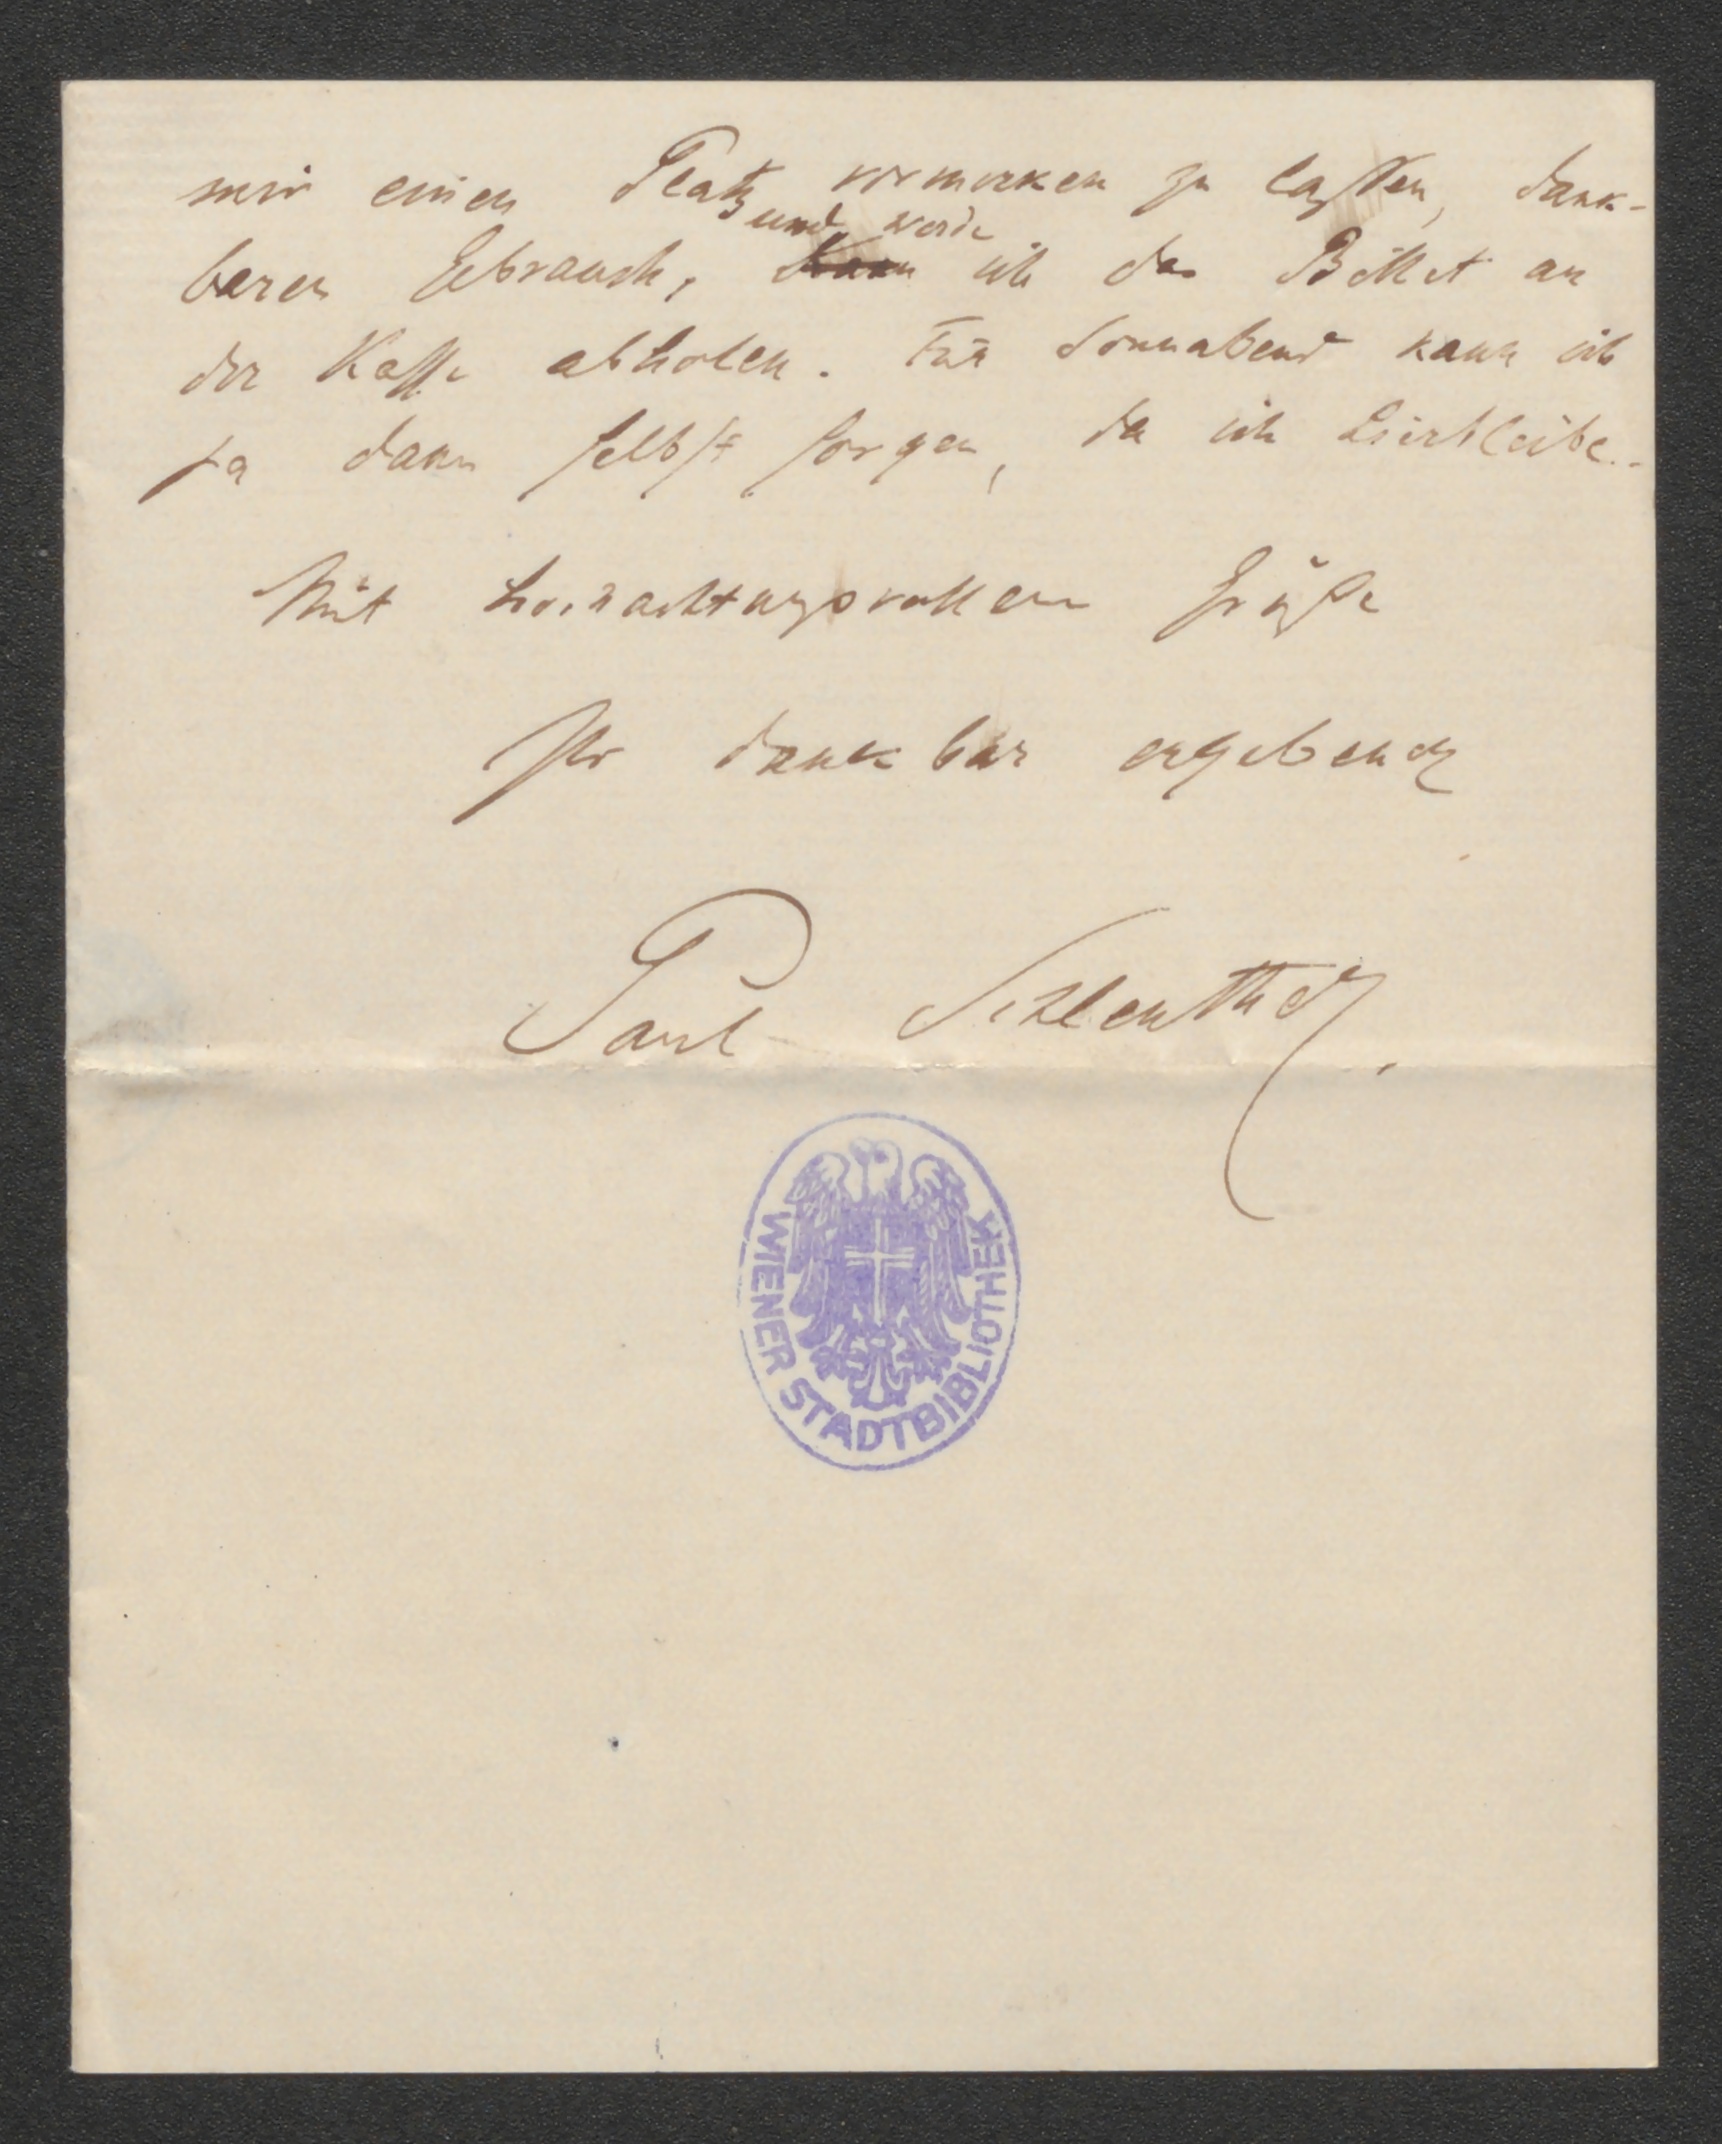 mir einen Platz vormerken zu lassen, dank-
und werde
baren Gebrauch, kann ich das Billet an
der Kasse abholen. Für Sonnabend kann ich
ja dann selbst sorgen, da ich hierbleibe.
Mit hochachtungsvollem Gruße
Ihr dankbar ergebener
Paul Schlenther.
WIENER STADTBIBLIOTHEK